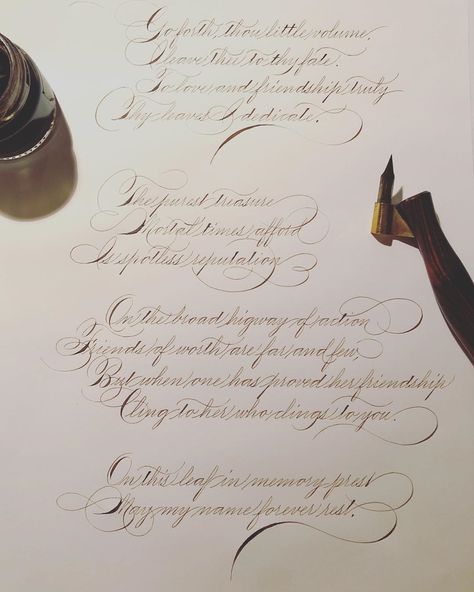 Go forth thou little volume,
I leave thee to thy fate.
To love and friendship truly
Thy leaves I dedicate.
The purest treasure
Mortal times afford
Is spotless reputation
On the broad higway of action
Friends of worth are far and few,
But when one has proved her friendship
Cling to her who clings to you.
On this leaf in memory prest
May my name forever rest.